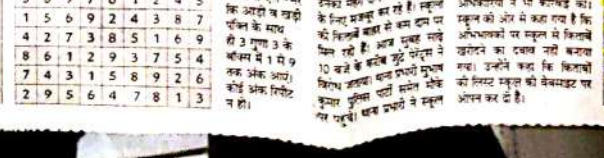 1 5 6 9 2 4 3 8 7
4 2 7 3 8 5 1 6 9
8 6 1 2 9 3 7 5 4
7 4 3 1 5 8 9 2 6
2 9 5 6 4 7 8 1 3
कि आड़ी व खड़ी
पंक्ति के साथ
ही 3 गुणा 3 के
बॉक्स में 1 से 9
तक अंक आएं।
कोई अंक रिपीट
न हो।
के लिए मजबूर कर रहे हैं। स्कूलों
की किताबें बाहर से कम दाम पर
मिल रहे हैं। आज सुबह साढ़े
10 बजे के करीब गुट पेरेंट्स ने
विरोध जताया। थाना प्रभारी सुभाष
कुमार पुलिस पार्टी समेत मौके
पर पहुंचे। थाना प्रभारी ने स्कूल
स्कूल की ओर से कहा गया है कि
अभिभावकों पर स्कूल से किताबें
खरीदने का दबाव नहीं बनाया
गया। उन्होंने कहा कि किताबों
की लिस्ट स्कूल की वेबसाइट पर
ओपन कर दी है।